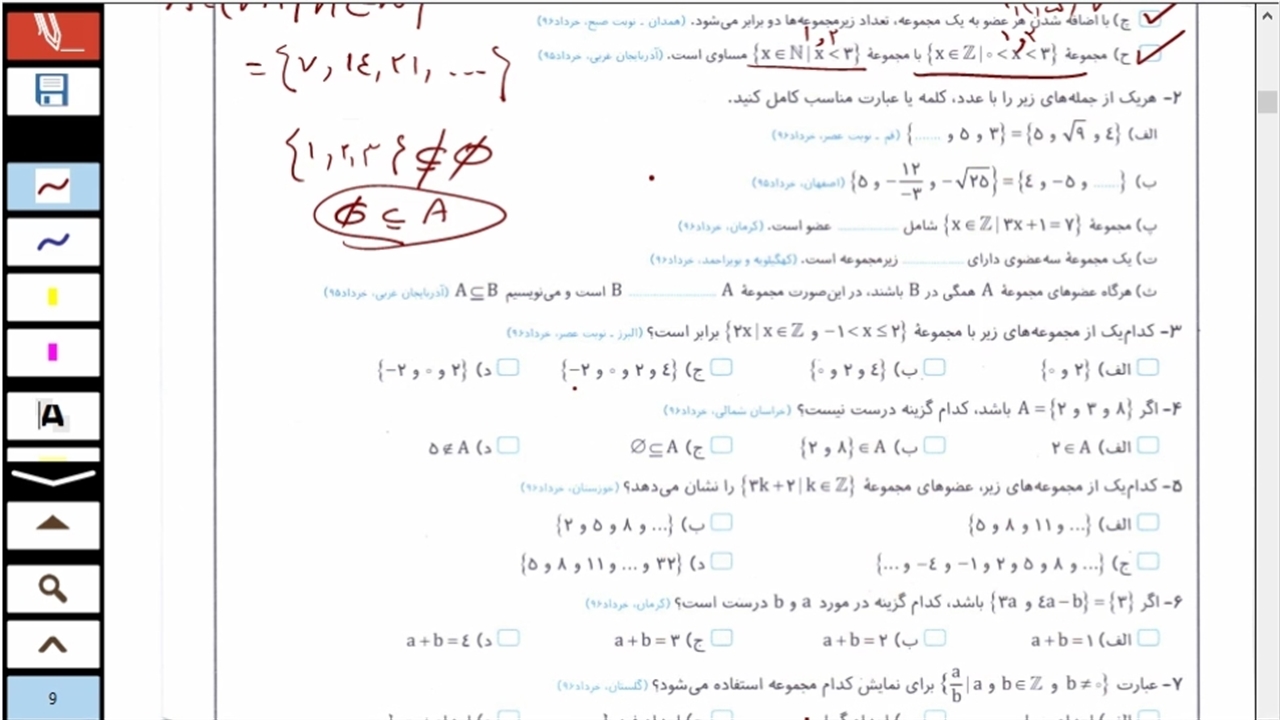 ج) با اضافه شدن هر عضو به یک مجموعه، تعداد زیرمجموعه‌ها دو برابر می‌شود. (همدان ـ نوبت صبح، خرداد۹۶)
۱,۲ ۱,۲
ح) مجموعهٔ {x∈ℤ|۰<x<۳} با مجموعهٔ {x∈ℕ|x<۳} مساوی است. (آذربایجان غربی، خرداد۹۵)
= {۷, ۱۴, ۲۱, ...}
{۱,۲,۳} ⊈ ∅
∅ ⊆ A
۲- هریک از جمله‌های زیر را با عدد، کلمه یا عبارت مناسب کامل کنید.
الف) {۴ و √۹ و ۵} = {۳ و ۵ و ......} (قم ـ نوبت عصر، خرداد۹۶)
ب) {...... و ۵- و ۴} = {-√۲۵ و -۱۲/-۳ و ۵} (اصفهان، خرداد۹۵)
پ) مجموعهٔ {x∈ℤ|۳x+۱=۷} شامل .............. عضو است. (کرمان، خرداد۹۶)
ت) یک مجموعهٔ سه‌عضوی دارای .............. زیرمجموعه است. (کهگیلویه و بویراحمد، خرداد۹۶)
ث) هرگاه عضوهای مجموعهٔ A همگی در B باشند، در این‌صورت مجموعهٔ A .................... B است و می‌نویسیم A⊆B (آذربایجان غربی، خرداد۹۵)
۳- کدام‌یک از مجموعه‌های زیر با مجموعهٔ {۲x|x∈ℤ و -۱<x≤۲} برابر است؟ (البرز ـ نوبت عصر، خرداد۹۶)
الف) {۲ و ۰} ب) {۴ و ۲ و ۰} ج) {۴ و ۲ و ۰ و ۲-} د) {۲ و ۰ و ۲-}
۴- اگر A={۸ و ۳ و ۲} باشد، کدام گزینه درست نیست؟ (خراسان شمالی، خرداد۹۶)
الف) ۲∈A ب) {۸ و ۲}∈A ج) ∅⊆A د) ۵∉A
۵- کدام‌یک از مجموعه‌های زیر، عضوهای مجموعهٔ {۳k+۲|k∈ℤ} را نشان می‌دهد؟ (خوزستان، خرداد۹۶)
الف) {... و ۱۱ و ۸ و ۵} ب) {... و ۸ و ۵ و ۲}
ج) {... و ۸ و ۵ و ۲ و ۱- و ۴- و ...} د) {۳۲ و ... و ۱۱ و ۸ و ۵}
۶- اگر {۳}={۴a-b و ۳a} باشد، کدام گزینه در مورد a و b درست است؟ (کرمان، خرداد۹۶)
الف) a+b=۱ ب) a+b=۲ ج) a+b=۳ د) a+b=۴
۷- عبارت {a/b|a و b∈ℤ و b≠۰} برای نمایش کدام مجموعه استفاده می‌شود؟ (گلستان، خرداد۹۶)
A
9